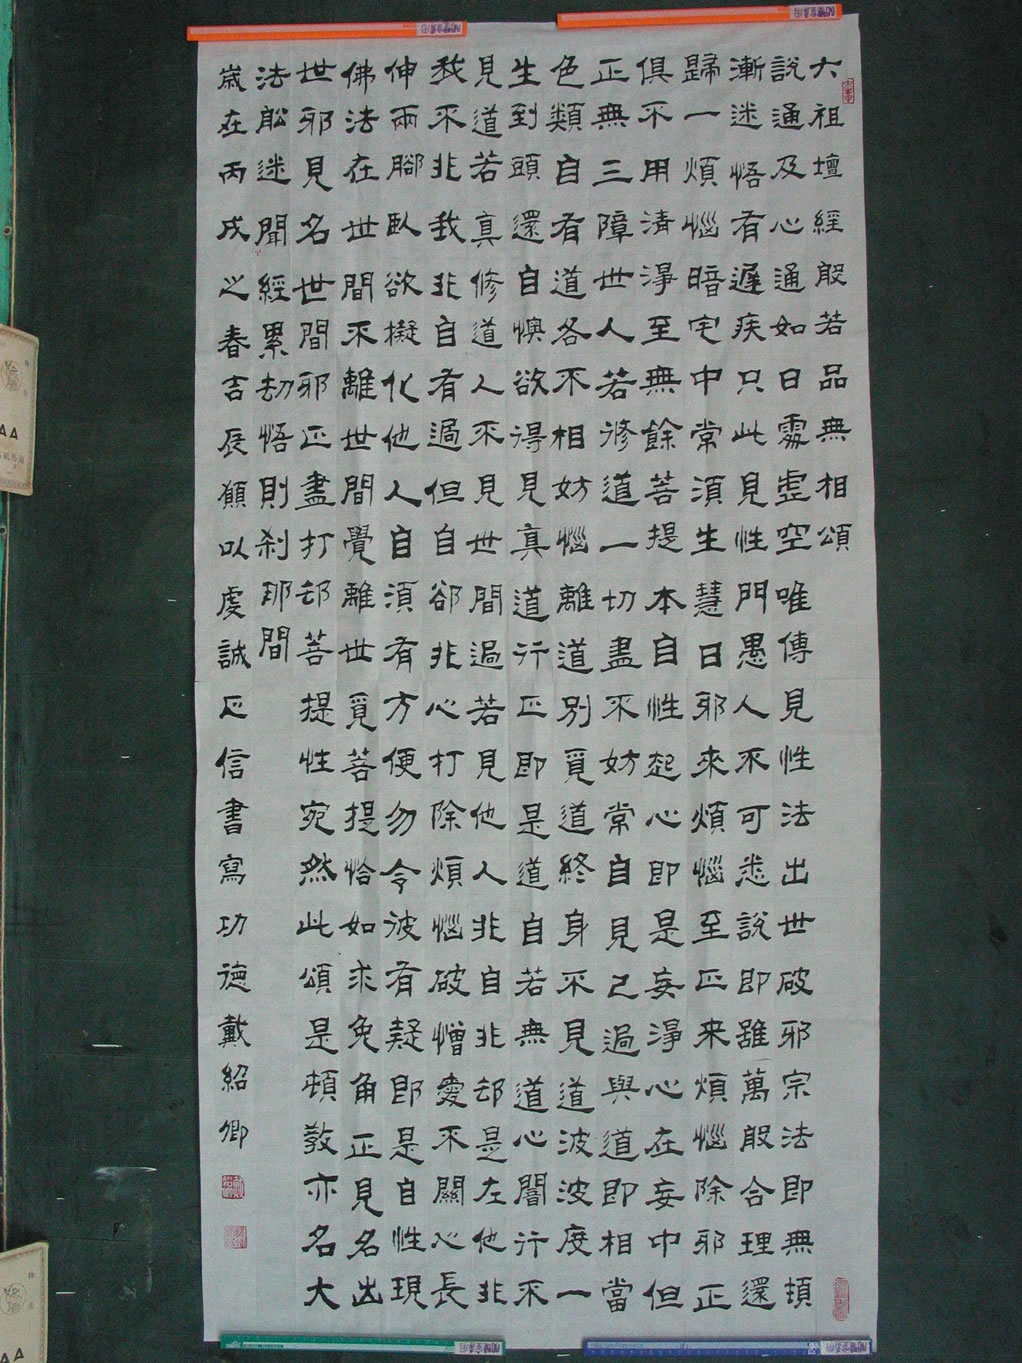 六祖壇經般若品無相頌
說通及心通如日處虛空唯傳見性法出世破邪宗法即無頓
漸迷悟有遲疾只此見性門愚人不可悉說即雖萬般合理還
歸一煩惱暗宅中常須生慧日邪來煩惱至正來煩惱除邪正
俱不用清淨至無餘菩提本自性起心即是妄淨心在妄中但
正無三障世人若修道一切盡不妨常自見己過與道即相當
色類自有道各不相妨惱離道別覓道終身不見道波波度一
生到頭還自懊欲得見真道行正即是道自若無道心闇行不
見道若真修道人不見世間過若見他人非自非却是左他非
我不非我非自有過但自卻非心打除煩惱破憎愛不關心長
伸兩腳臥欲擬化他人自須有方便勿令彼有疑即是自性現
佛法在世間不離世間覺離世覓菩提恰如求兔角正見名出
世邪見名世間邪正盡打却菩提性宛然此頌是頓教亦名大
法船迷聞經累劫悟則剎那間
歲在丙戌之春吉辰願以虔誠正信書寫功德戴紹卿